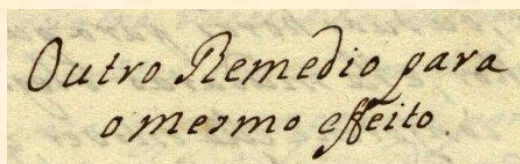 Outro Remedio para
o mesmo effeito.